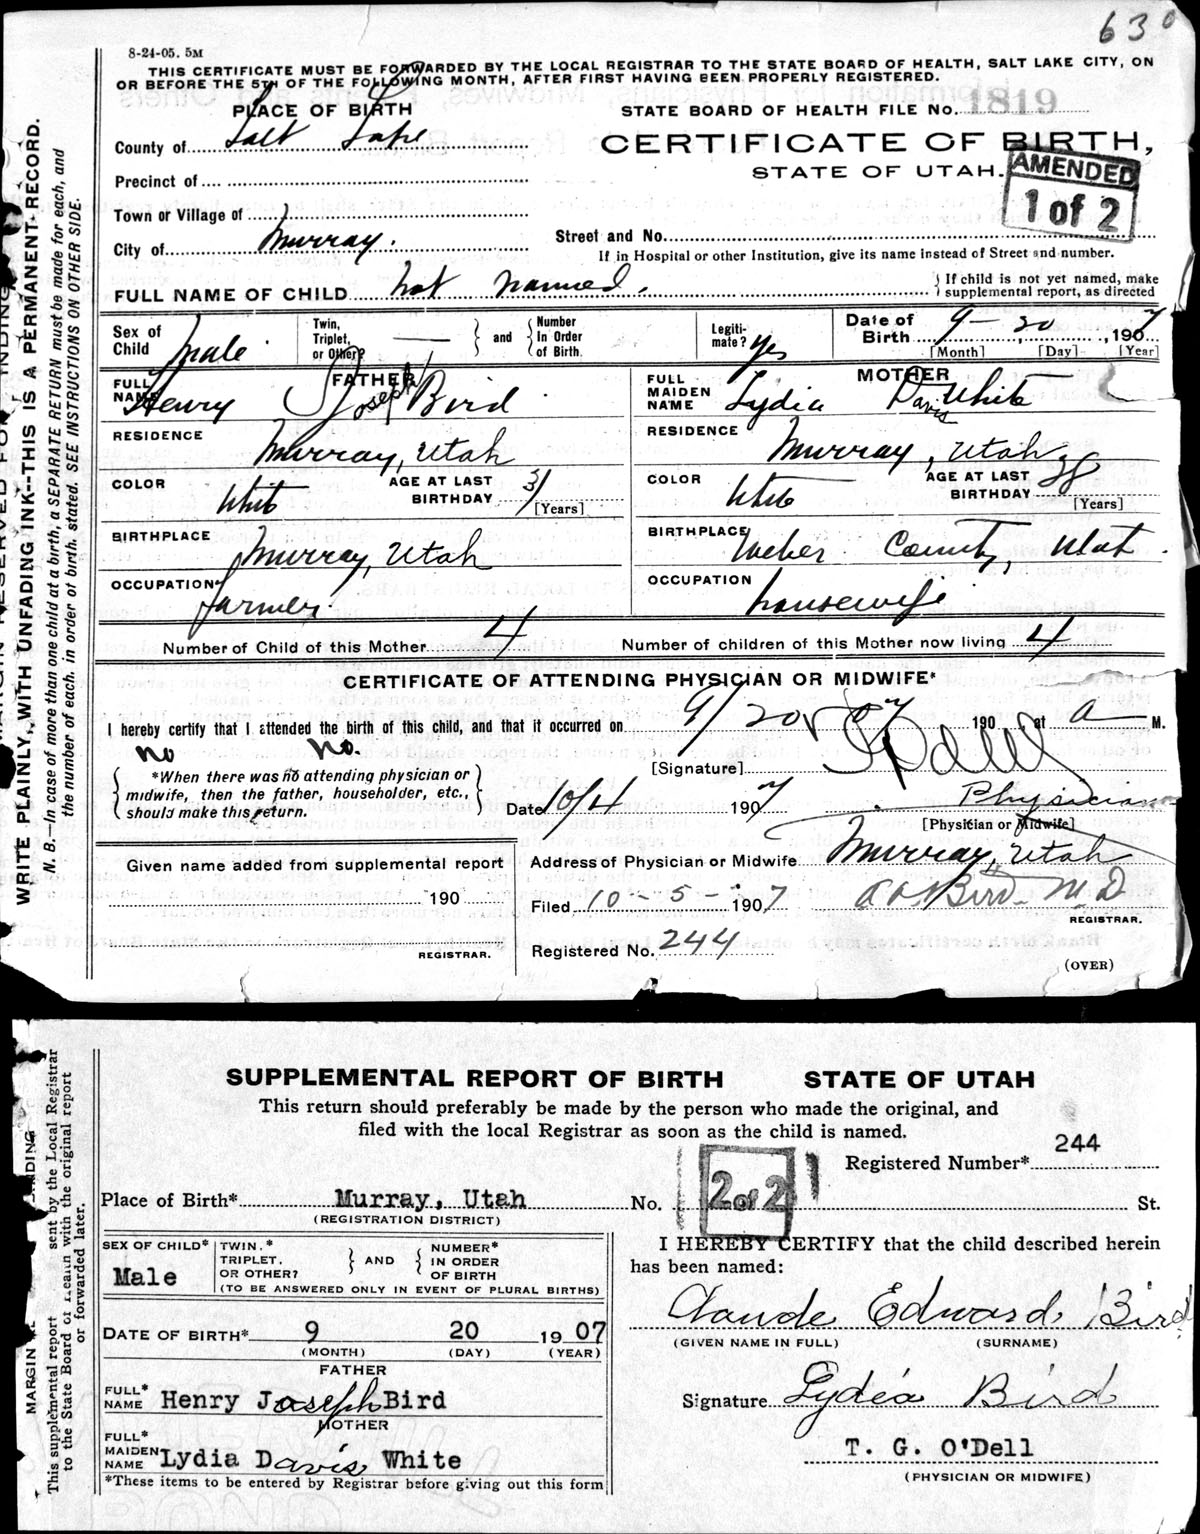 630
8-24-05. 5M
THIS CERTIFICATE MUST BE FORWARDED BY THE LOCAL REGISTRAR TO THE STATE BOARD OF HEALTH, SALT LAKE CITY, ON
OR BEFORE THE 5TH OF THE FOLLOWING MONTH, AFTER FIRST HAVING BEEN PROPERLY REGISTERED.
PLACE OF BIRTH
STATE BOARD OF HEALTH FILE No. 1819
County of Salt Lake
CERTIFICATE OF BIRTH,
STATE OF UTAH.
AMENDED
1 of 2
Precinct of
Town or Village of
City of Murray.
Street and No.
If in Hospital or other Institution, give its name instead of Street and number.
FULL NAME OF CHILD Not named.
{ If child is not yet named, make
supplemental report, as directed
Sex of Child Male
Twin, Triplet, or Other? — } and { Number In Order of Birth.
Legitimate? Yes
Date of Birth 9-20, 1907
[Month] [Day] [Year]
FATHER
FULL NAME Henry J Joseph Bird
RESIDENCE Murray, Utah
COLOR White
AGE AT LAST BIRTHDAY 31
[Years]
BIRTHPLACE Murray, Utah
OCCUPATION farmer.
MOTHER
FULL MAIDEN NAME Lydia D Davis White
RESIDENCE Murray, Utah
COLOR White
AGE AT LAST BIRTHDAY
[Years]
BIRTHPLACE Weber County, Utah.
OCCUPATION housewife
Number of Child of this Mother 4
Number of children of this Mother now living 4
CERTIFICATE OF ATTENDING PHYSICIAN OR MIDWIFE*
I hereby certify that I attended the birth of this child, and that it occurred on 9/20 07 190 at a M.
no no.
{ *When there was no attending physician or
midwife, then the father, householder, etc.,
should make this return. }
[Signature]
Date 10/4 1907
Physician
[Physician or Midwife]
Given name added from supplemental report
190
REGISTRAR.
Address of Physician or Midwife Murray, Utah
Filed 10-5-1907
Bird M.D
REGISTRAR.
Registered No. 244
(OVER)
WRITE PLAINLY, WITH UNFADING INK--THIS IS A PERMANENT RECORD.
N. B.—In case of more than one child at a birth, a SEPARATE RETURN must be made for each, and
the number of each, in order of birth, stated. SEE INSTRUCTIONS ON OTHER SIDE.
SUPPLEMENTAL REPORT OF BIRTH STATE OF UTAH
This return should preferably be made by the person who made the original, and
filed with the local Registrar as soon as the child is named.
Registered Number* 244
Place of Birth* Murray, Utah No. St.
(REGISTRATION DISTRICT)
2 of 2
SEX OF CHILD* Male
TWIN,* TRIPLET, OR OTHER? } AND { NUMBER* IN ORDER OF BIRTH
(TO BE ANSWERED ONLY IN EVENT OF PLURAL BIRTHS)
DATE OF BIRTH* 9 20 1907
(MONTH) (DAY) (YEAR)
FATHER
FULL* NAME Henry Joseph Bird
MOTHER
FULL* MAIDEN NAME Lydia Davis White
*These items to be entered by Registrar before giving out this form
I HEREBY CERTIFY that the child described herein
has been named:
Claude Edward Bird
(GIVEN NAME IN FULL) (SURNAME)
Signature Lydia Bird
T. G. O'Dell
(PHYSICIAN OR MIDWIFE)
This supplemental report sent by the Local Registrar
to the State Board of Health with the original report
or forwarded later.